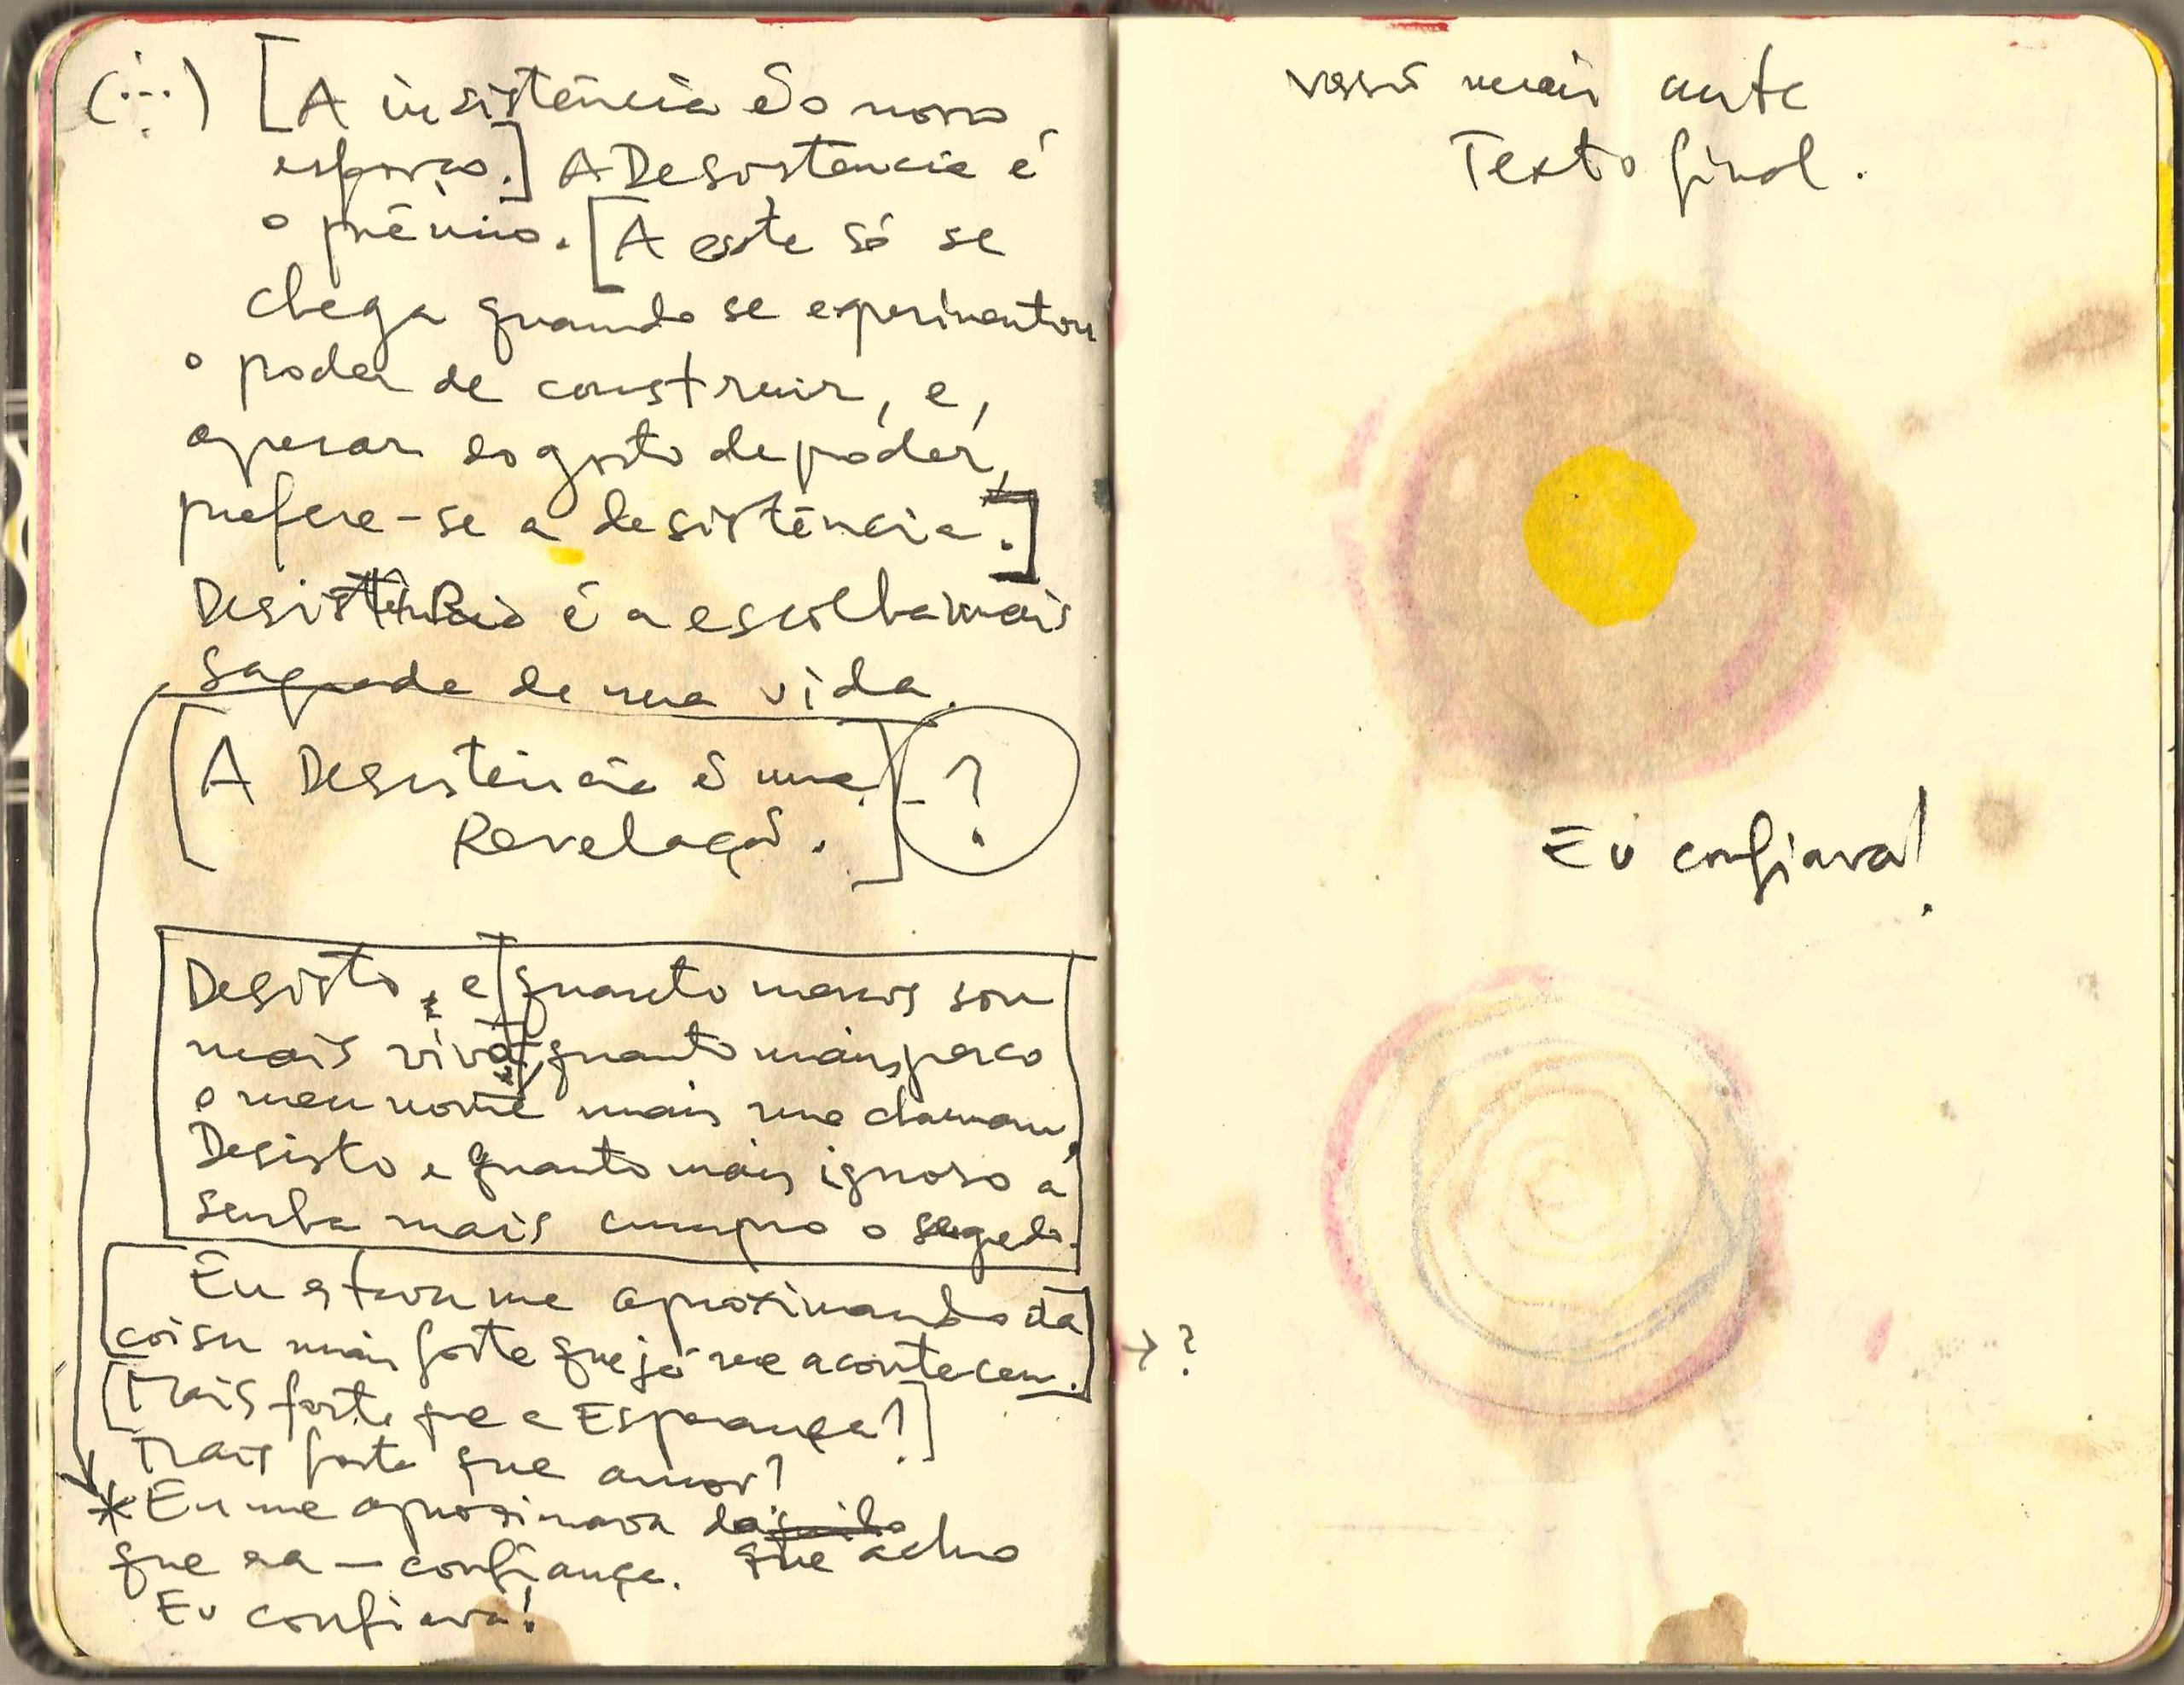 (...) [A insistência é o nosso
esforço.] A Desistencia é
o prêmio. [A este só se
chega quando se experimentou
o poder de construir, e,
apesar do gosto de poder,
prefere-se a desistência.]
Desistência é a escolha mais
sagrada de uma vida.
[A Desistência é uma] - ?
Revelação.
Desisto, e quanto menos sou
mais viva, quanto mais perco
o meu nome mais me chamam,
Desisto e quanto mais ignoro a
senha mais cumpro o segredo.
[Eu estava me aproximando da
coisa mais forte que já me aconteceu.] → ?
[Mais forte que a Esperança?]
Mais forte que amor?
* Eu me aproximava do que acho
que era — confiança.
Eu confiava!
mais
Texto final.
Eu confiava!